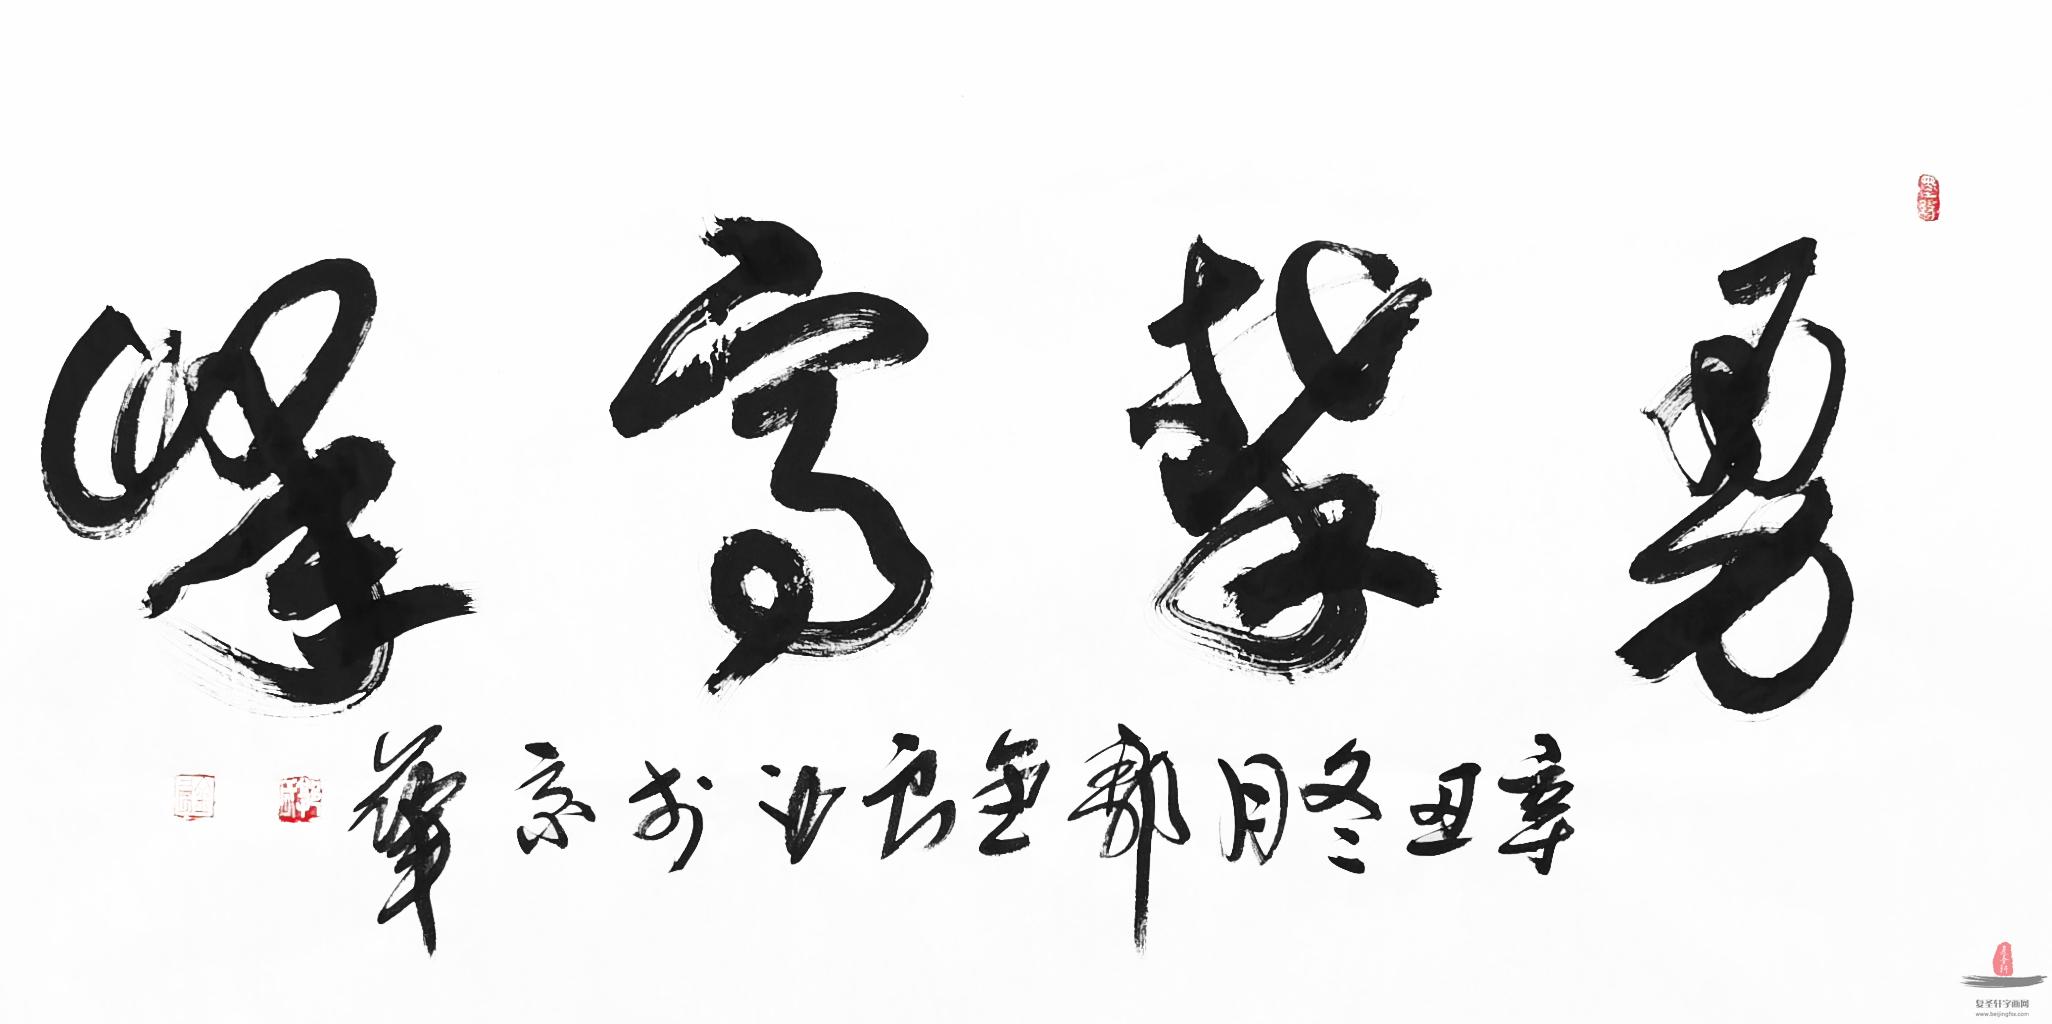 勇攀高峰
辛丑冬月郭金良沙书于京華
复圣轩字画网
www.beijingfsx.com